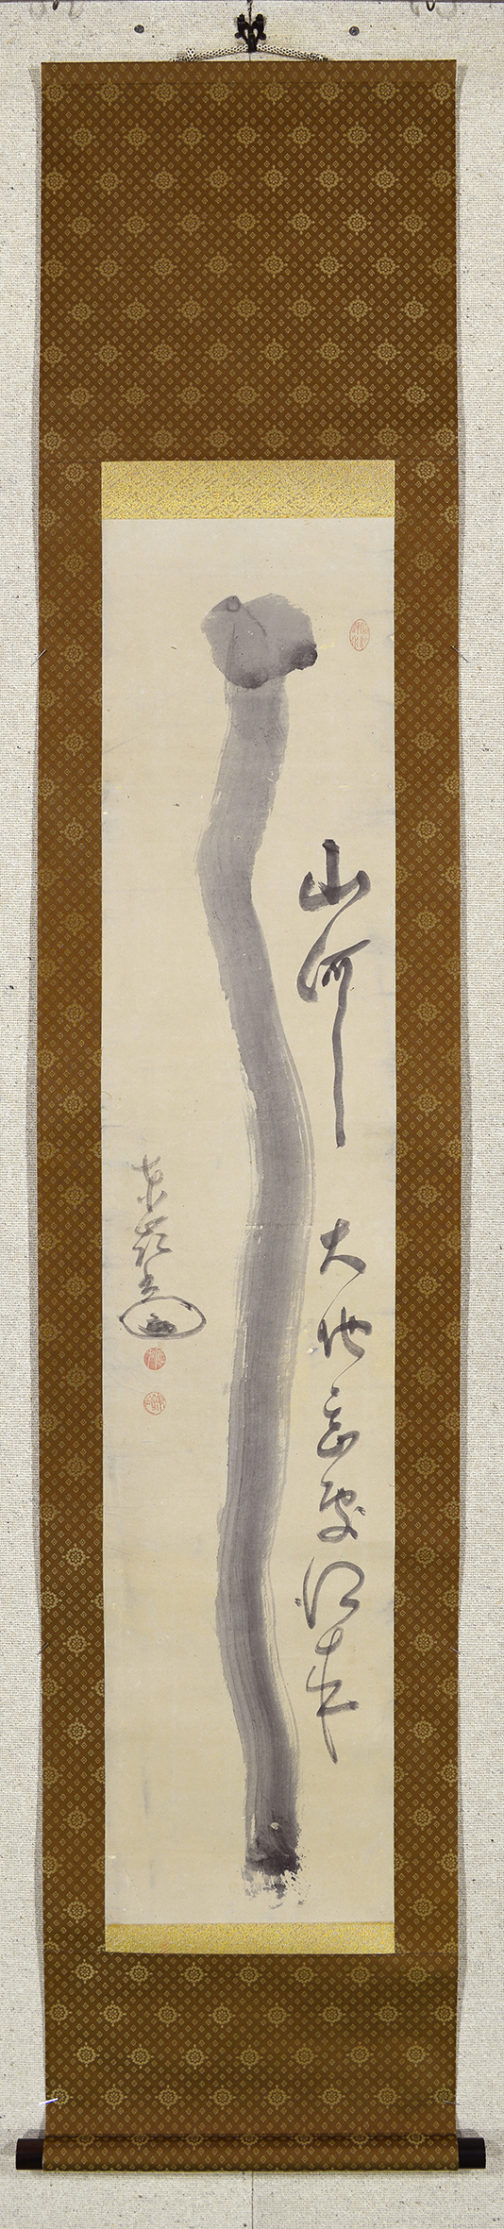 山河大地甚處得来
東嶺